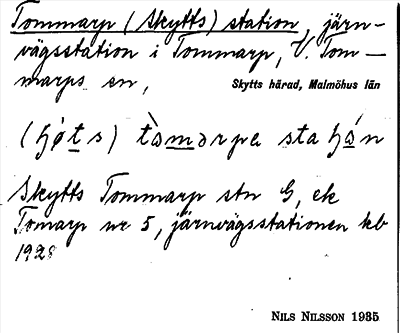 Tommarp (Skytts) station, järn-
vägsstation i Tommarp, V. Tom-
marps sn,
Skytts härad, Malmöhus län
tåmərpa sta
Skytts Tommarp stn G, ek
Tomarp nr 5, järnvägsstationen kb
1928
NILS NILSSON 1935